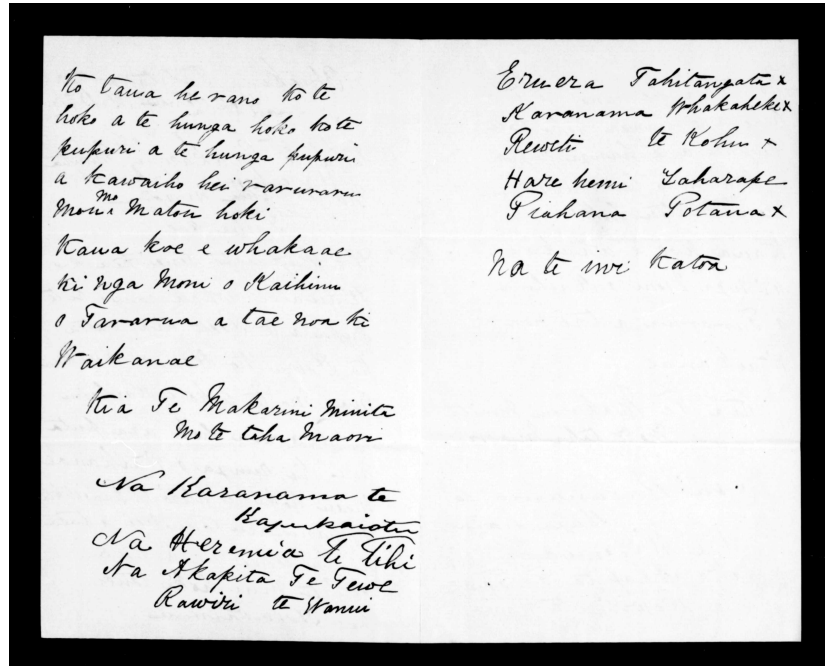 Ko taua he rano ko te
hoko a te hunga hoko ko te
pupuri a te hunga pupuri
a kawaiho hei raruraru
moni mo Matou hoki
Kaua koe e whakaae
ki nga Moni o Kaihinu
o Tararua a tae noa ki
Waikanae
Kia Te Makarini Minita
Mo te taha Maori
Na Karanama te
Kapukaiotu
Na Heremia Te Tihi
Na Akapita Te Tewe
Rawiri te Wanui
Eruera Tahitangata x
Karanama Whakaheke x
Reweti te Kohu x
Hare hemi Taharape
Piahana Potana x
Na te iwi Katoa